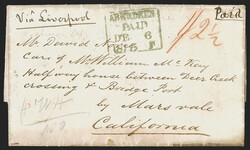 Via Liverpool
Paid
ABERDEEN
PAID
DE 6
1/2½
Mr David
Care of Mr William Mc Kay
Half way house between Deer Creek
crossing & Bridge Port
by Marysvale
California